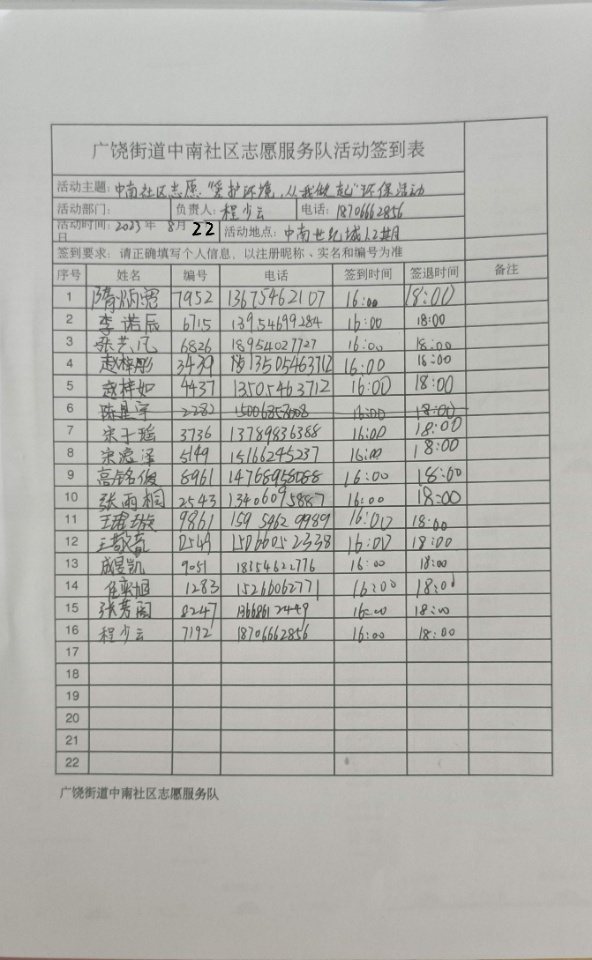 广饶街道中南社区志愿服务队活动签到表
活动主题: 中南社区志愿 "爱护环境,从我做起"环保活动
活动部门: 负责人: 程少云 电话: 18706662856
活动时间: 2023 年 8月 22 日 活动地点: 中南世纪城1.2期
签到要求: 请正确填写个人信息, 以注册昵称、实名和编号为准
序号 姓名 编号 电话 签到时间 签退时间 备注
1 7952 13675462107 16:00 18:00
2 李诺辰 6715 13954699284 16:00 18:00
3 张艺凡 6826 18954027727 16:00 18:00
4 赵梓彤 3439 13505463712 16:00 16:00
5 赵梓如 4437 13505463712 16:00 18:00
6 陈星宇 2282 16:00 18:00
7 宋子瑶 3736 13789836388 16:00 18:00
8 5149 15166245237 16:00 18:00
9 高铭俊 8961 16:00 18:00
10 张雨桐 2543 13406095887 16:00 18:00
11 9861 159 5462 9989 16:00 18:00
12 16:00 18:00
13 成昱凯 9051 18154622776 16:00 18:00
14 1283 15266062771 16:00 18:00
15 0247 16:00 18:00
16 程少云 7192 18706662856 16:00 18:00
17
18
19
20
21
22
广饶街道中南社区志愿服务队